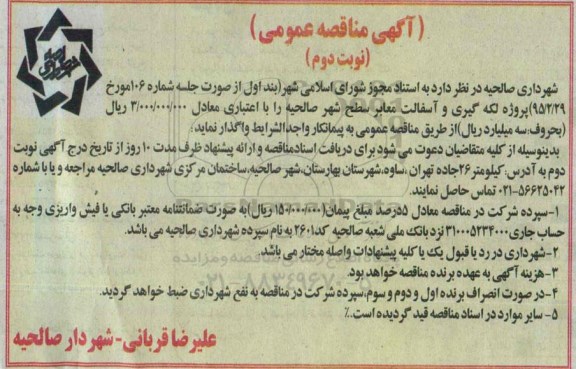 (آگهی مناقصه عمومی)
(نوبت دوم)
شهرداری صالحیه در نظر دارد به استناد مجوز شورای اسلامی شهر(بند اول از صورت جلسه شماره ۱۰۶مورخ
۹۵/۲/۲۹)پروژه لکه گیری و آسفالت معابر سطح شهر صالحیه را با اعتباری معادل ۳/۰۰۰/۰۰۰/۰۰۰ ریال
(بحروف:سه میلیارد ریال)از طریق مناقصه عمومی به پیمانکار واجدالشرایط واگذار نماید؛
بدینوسیله از کلیه متقاضیان دعوت می شود برای دریافت اسنادمناقصه و ارائه پیشنهاد ظرف مدت ۱۰ روز از تاریخ درج آگهی نوبت
دوم به آدرس: کیلومتر۲۶جاده تهران ،ساوه،شهرستان بهارستان،شهر صالحیه،ساختمان مرکزی شهرداری صالحیه مراجعه و یا با شماره
۰۲۱-۵۶۶۲۵۰۴۲ تماس حاصل نمایند.
۱-سپرده شرکت در مناقصه معادل ۵درصد مبلغ پیمان(۱۵۰/۰۰۰/۰۰۰ ریال)به صورت ضمانتنامه معتبر بانکی یا فیش واریزی وجه به
حساب جاری۳۱۰۰۰۵۲۳۴۰۰۰ نزد بانک ملی شعبه صالحیه کد۲۶۰۱ به نام سپرده شهرداری صالحیه می باشد.
۲-شهرداری در رد یا قبول یک یا کلیه پیشنهادات واصله مختار می باشد.
۳-هزینه آگهی به عهده برنده مناقصه خواهد بود.
۴-در صورت انصراف برنده اول و دوم و سوم،سپرده شرکت در مناقصه به نفع شهرداری ضبط خواهد گردید.
۵- سایر موارد در اسناد مناقصه قید گردیده است.٪
علیرضا قربانی-شهردار صالحیه